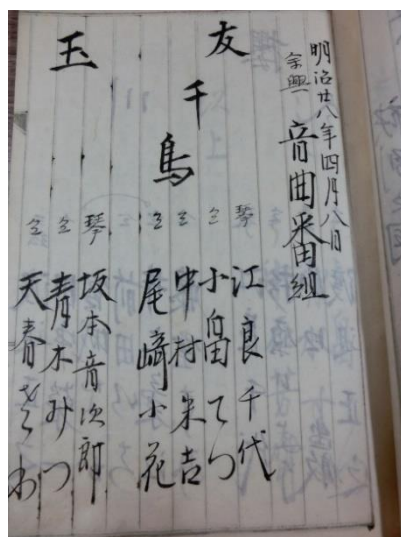 明治廿八年四月八日
余興 音曲番組
友千鳥
琴 江良千代
仝 小畠てつ
仝 中村米吉
仝 尾﨑小花
玉
琴 坂本音次郎
仝 青木みつ
仝 天春